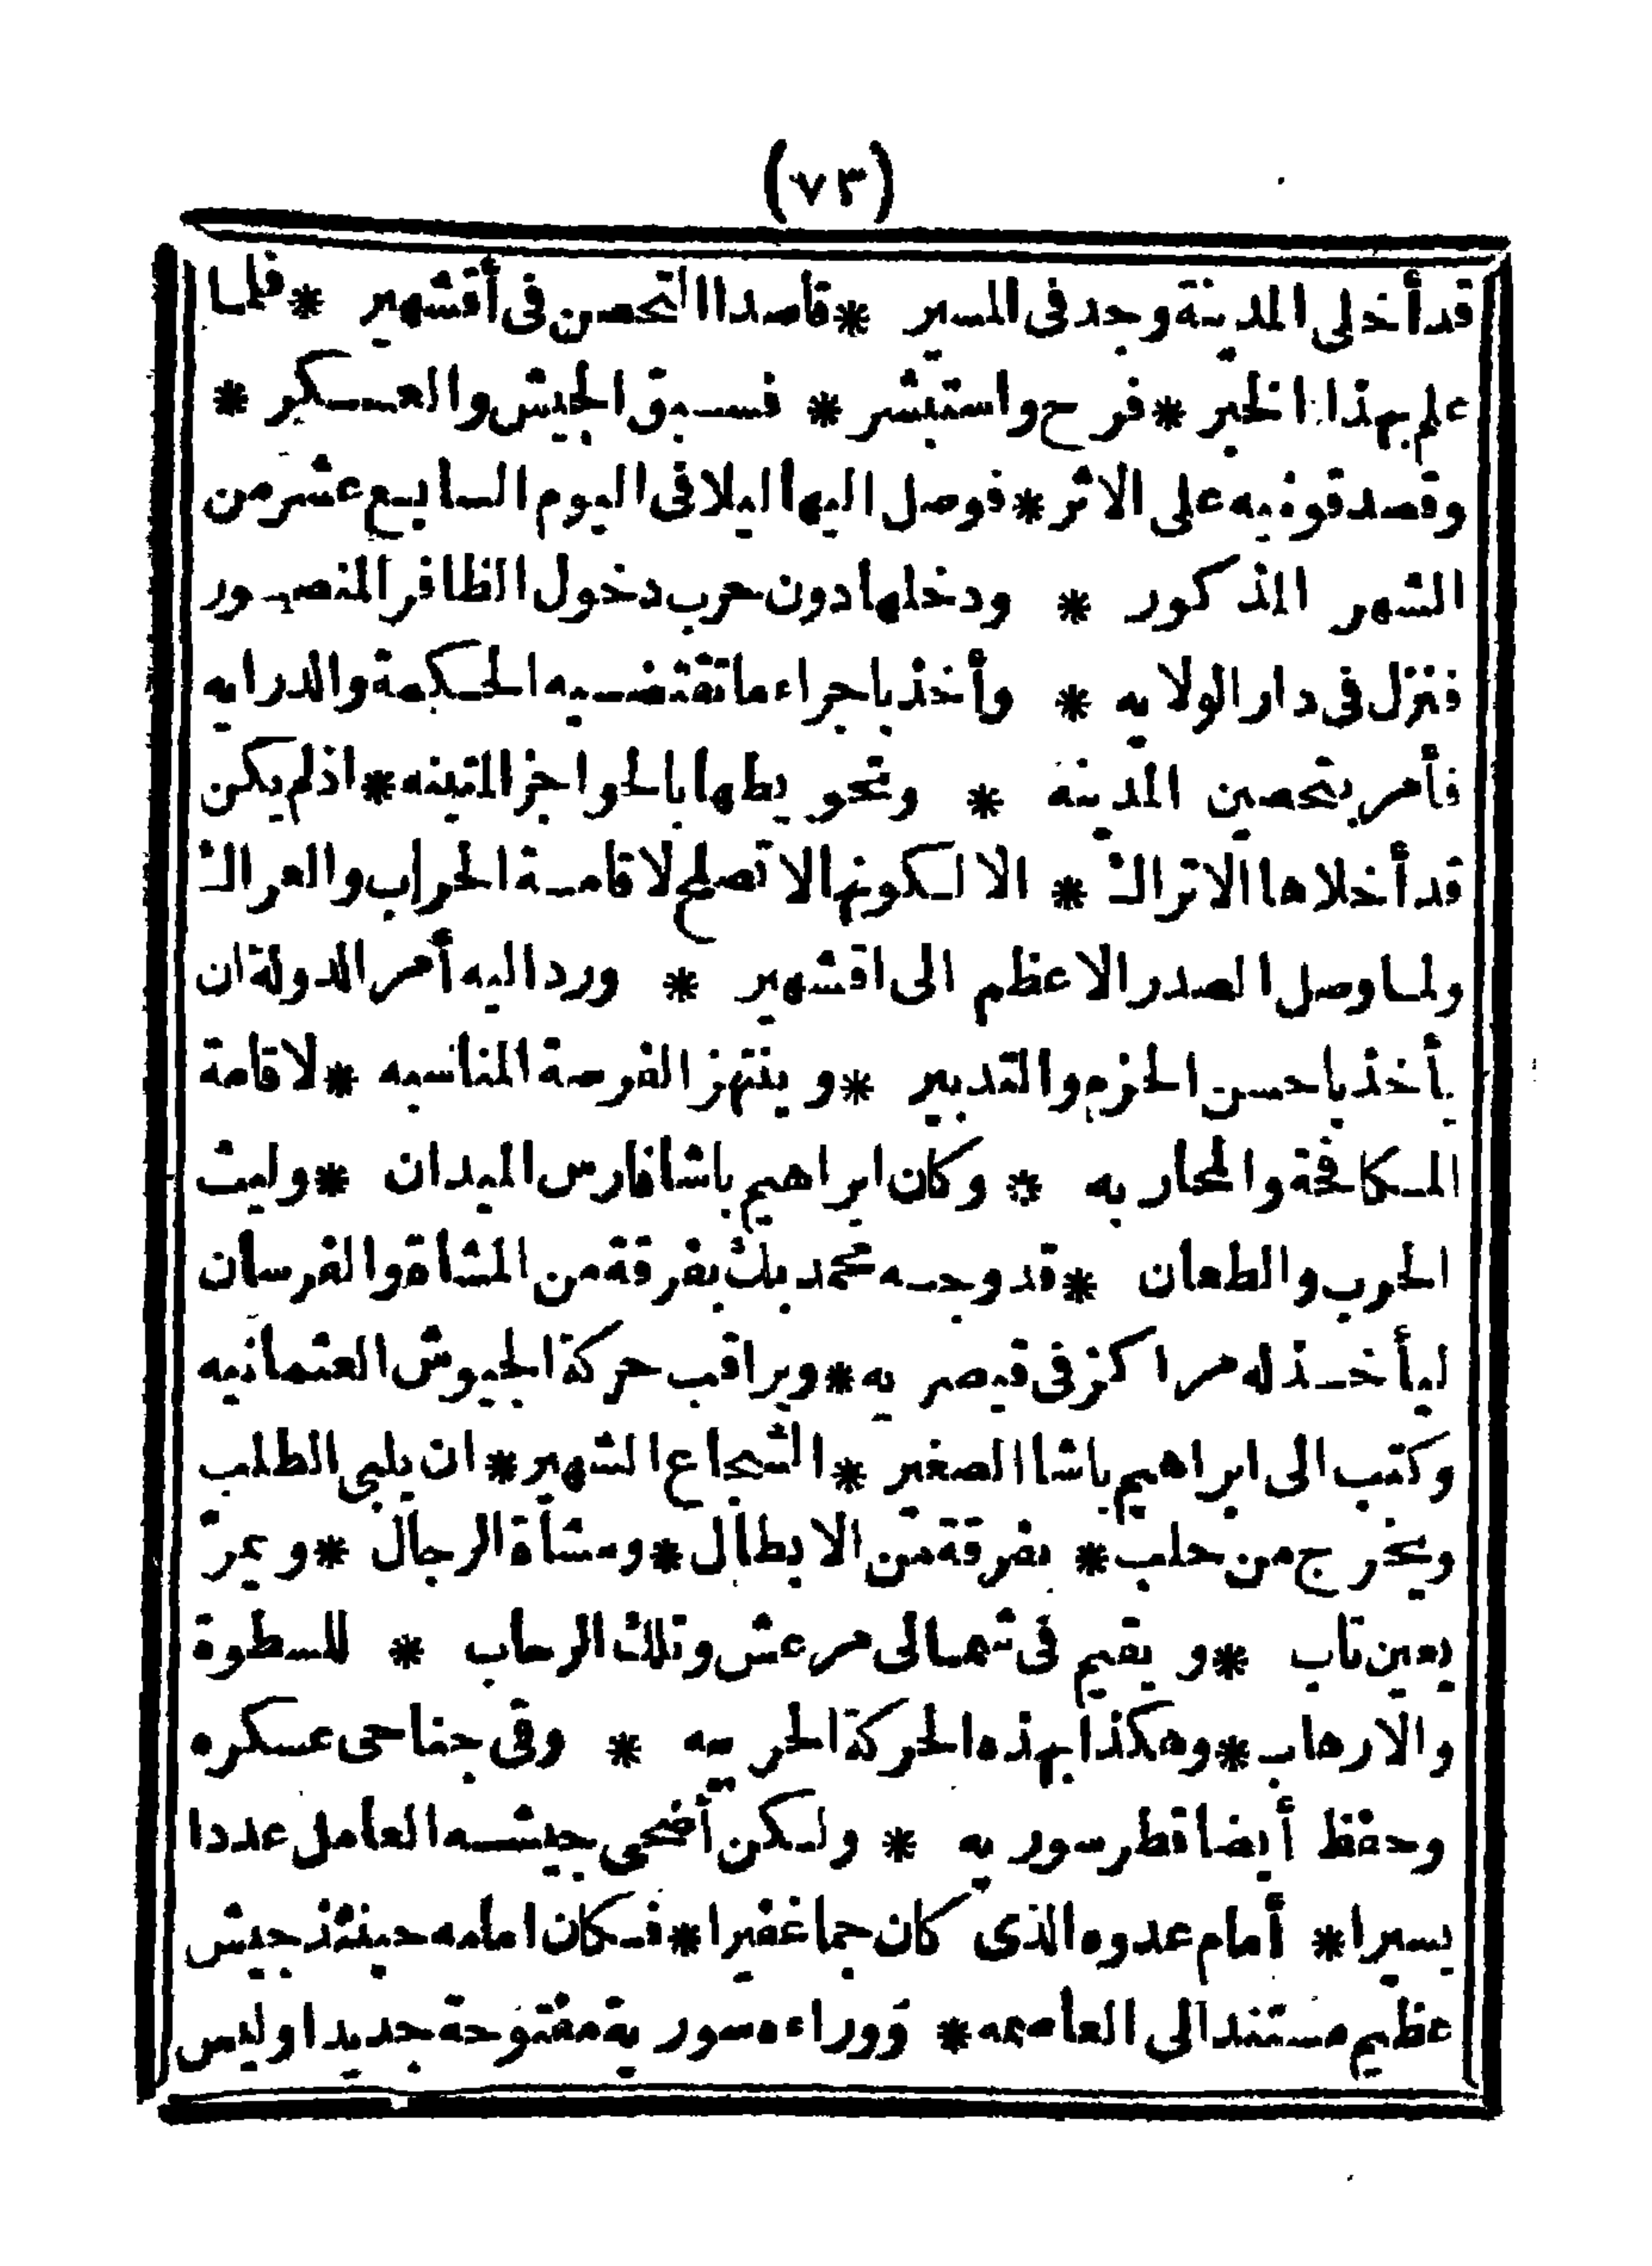 (٧٣)
قد أخلى المدينة وجد فى المسير * قاصدا التحصن فى أقشهير * فلما
علم بهذا الخبر * فرح واستبشر * فسبق الجيش والعسكر *
وقصد قونيه على الاثر * فوصل اليها ليلا فى اليوم السابع عشر من
الشهر المذكور * ودخلها دون حرب دخول الظافر المنصور
فنزل فى دار الولايه * وأخذ باجراء ما تقتضيه الحكمة والدرايه
فأمر بتحصين المدينة * وتحويطها بالحواجز المتينه * اذ لم يكن
قد أخلاها الاتراك * الا لكونها لا تصلح لاقامة الحراب والعراك
ولما وصل الصدر الاعظم الى اقشهير * ورد اليه أمر الدولة ان
يأخذ باحسن الحزم والتدبير * وينتهز الفرصة المناسبه * لاقامة
المكافحة والمحاربه * وكان ابراهيم باشا فارس الميدان * وليث
الحرب والطعان * قد وجه محمد بك بفرقة من المشاة والفرسان
ليأخذ له مراكز فى قيصريه * ويراقب حركة الجيوش العثمانيه
وكتب الى ابراهيم باشا الصغير * الشجاع الشهير * ان يلبى الطلب
ويخرج من حلب * بفرقة من الابطال * ومشاة الرجال * ويمرّ
بعين تاب * ويقيم فى شمالى مرعش وتلك الرحاب * للسطوة
والارهاب * وهكذا بهذه الحركة الحربيه * وقى جناحى عسكره
وحفظ أيضا قطر سوريه * ولكن أضحى جيشه العامل عددا
يسيرا * أمام عدوه الذى كان جما غفيرا * فكان امامه حينئذ جيش
عظيم مستند الى العاصمه * ووراءه سورية مفتوحة جديدا وليس